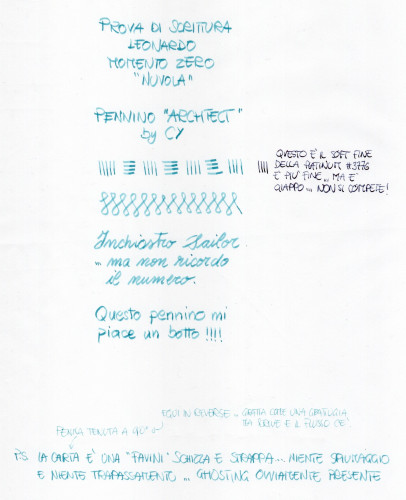 PROVA DI SCRITTURA
LEONARDO
MOMENTO ZERO
"NUVOLA"
PENNINO "ARCHITECT"
by CY
QUESTO È IL SOFT FINE
DELLA PLATINUM #3776
È PIÙ FINE.. MA È
GIAPPO... NON SI COMPETE!
Inchiostro Sailor
... ma non ricordo
il numero.
Questo pennino mi
piace un botto !!!!
EQUI IN REVERSE .. GRATTA COME UNA GRATTUGIA
MA SCRIVE E IL FLUSSO C'È.
PENNA TENUTA A 90°
P.S. LA CARTA È UNA "FAVINI" SCHIZZA E STRAPPA... NIENTE SPIUMAGGIO
E NIENTE TRAPASSAMENTO ... GHOSTING OVVIAMENTE PRESENTE